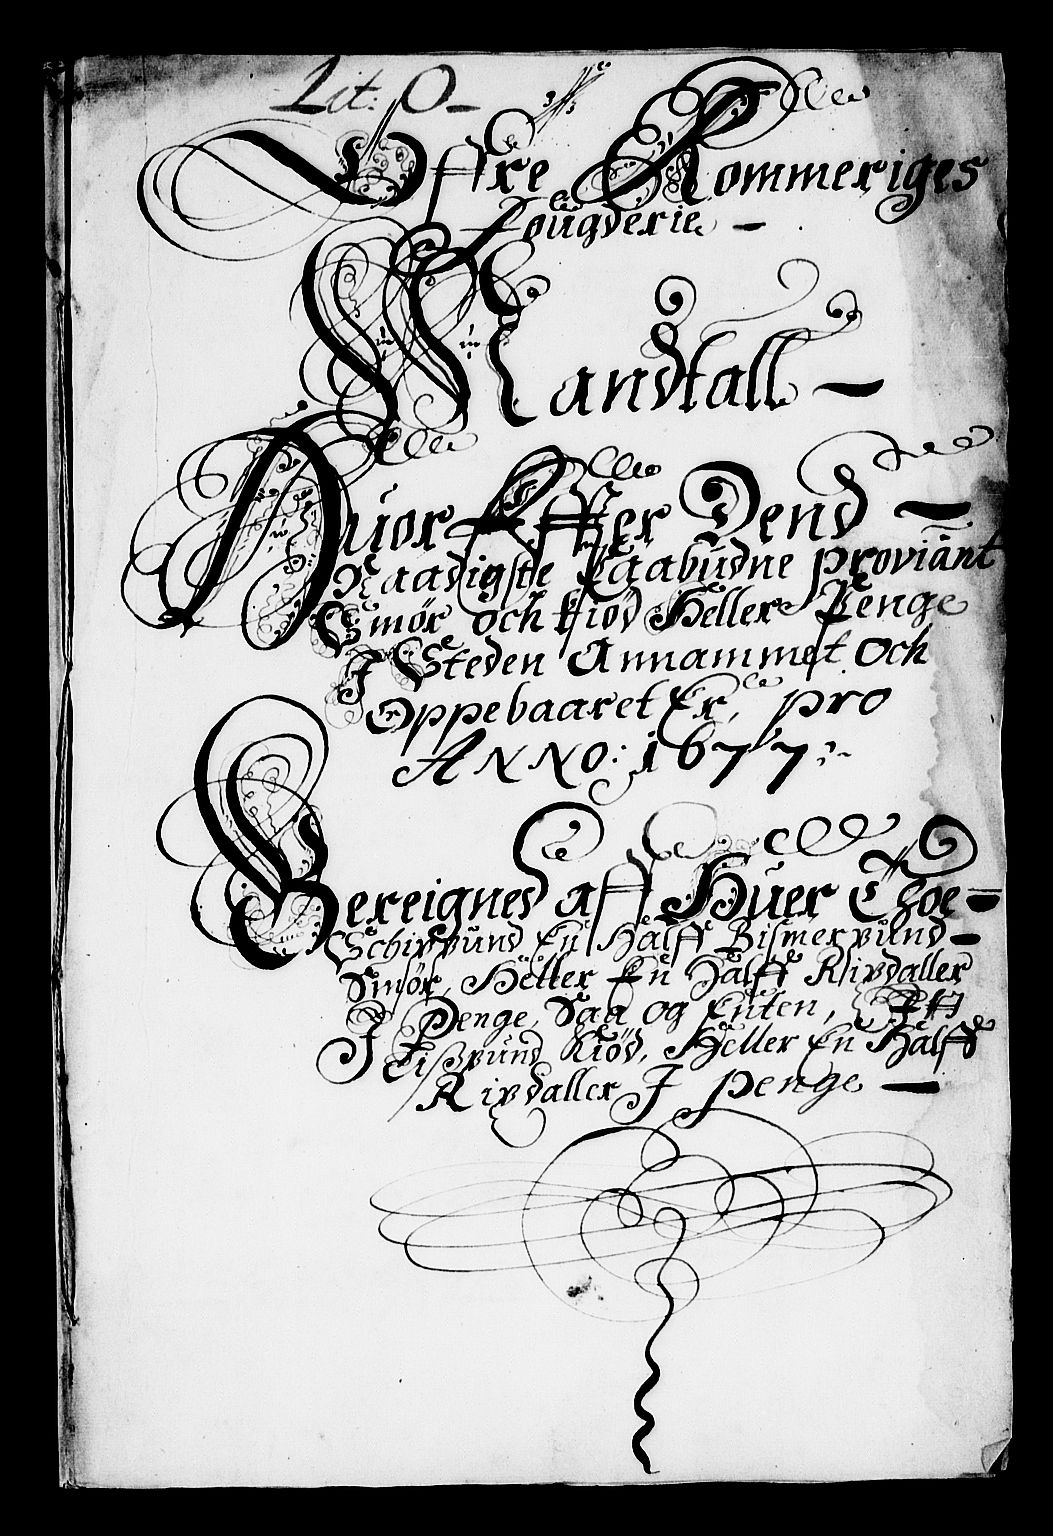 Lit: O
Øffre Rommeriges
Fougderie
Mandtall
Huor Effter Dend
Naadigste Paabudne proviant
Smør och Kiød Heller Penge
J Steden Annammet Och
Oppebaaret Er, pro
ANNO: 1677
Bereignes aff Huer Thoe
Schippund En Halff Bismerpund
Smør, Heller En Halff Rixdaller
J Penge, Saa og Enten, Et
Lispund Kiød, Heller En Halff
Rixdaller J penge